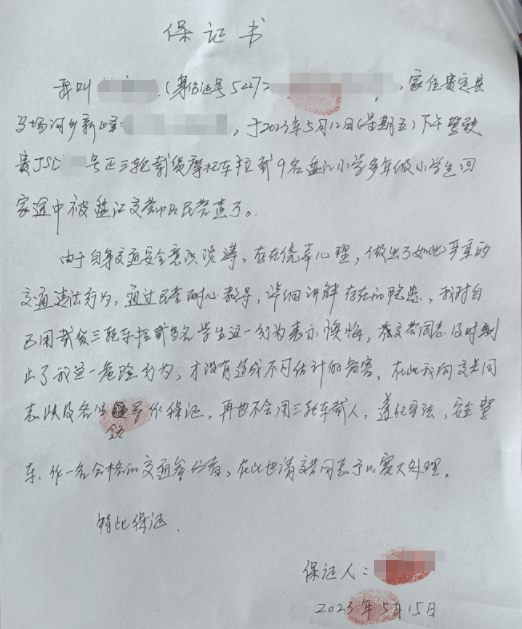 保证书
我叫 (身份证号5227 ,家住贵定县
马场河乡新峰 ,于2023年5月12日(星期五)下午驾驶
贵JSD 号正三轮载货摩托车拉载9名盘江小学多年级小学生回
家途中被盘江交警中队民警查了。
由于自身交通安全意识淡薄,存在侥幸心理,做出了如此严重的
交通违法行为,通过民警耐心教导,详细讲解存在的隐患,我对自
己用载货三轮车拉载多名学生这一行为表示悔悔,在交警同志及时制
止了我这一危险行为,才没有造成不可估计的危害,在此我向交警同
志以及各位 领导作保证,再也不会用三轮车载人,遵纪守法,安全驾
车、作一名合格的交通参与者,在此也请交警同志予以宽大处理。
特此保证.
保证人:
2023年5月15日